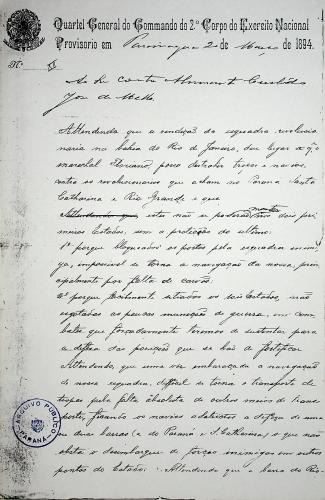 Quartel General do Commando do 2.º Corpo do Exercito Nacional
Provisorio em Paranagua 2 de Março de 1894.
Nº
Ao Contra Almirante Custodio
José de Mello
Attendendo que a rendição da esquadra revolucio
naria na bahia do Rio de Janeiro, deu lugar a q̃ o
marechal Floriano, possa destacar tropas e navios,
contra os revolucionarios que actuam no Paraná Santa
Catharina e Rio Grande e que
Attendendo que estes não se poderão manter nos dois pri
meiros Estados, sem a protecção do ultimo:
1º porque bloqueados os portos pela esquadra inimi
ga, impossivel se torna a navegação da nossa, prin
cipalmente por falta de carvão:
2º porque facilmente sitiados os dois Estados, são
esgotadas as poucas munições de guerra, nos com
bates que forçadamente teremos de sustentar para
a defeza das posições que se hão de fortificar
Attendendo que uma vez embaraçada a navegação
de nossa esquadra, difficil se torna o transporte de
tropas pela falta absoluta de outros meios de trans
porte, ficando os navios adstrictos a defeza de uma
ou duas barras (a do Paraná e S. Catharina) o que não
obsta o desembarque de forças inimigas em outros
pontos do Estado: Attendendo que a barra do Rio
ARQUIVO PÚBLICO
PARANÁ